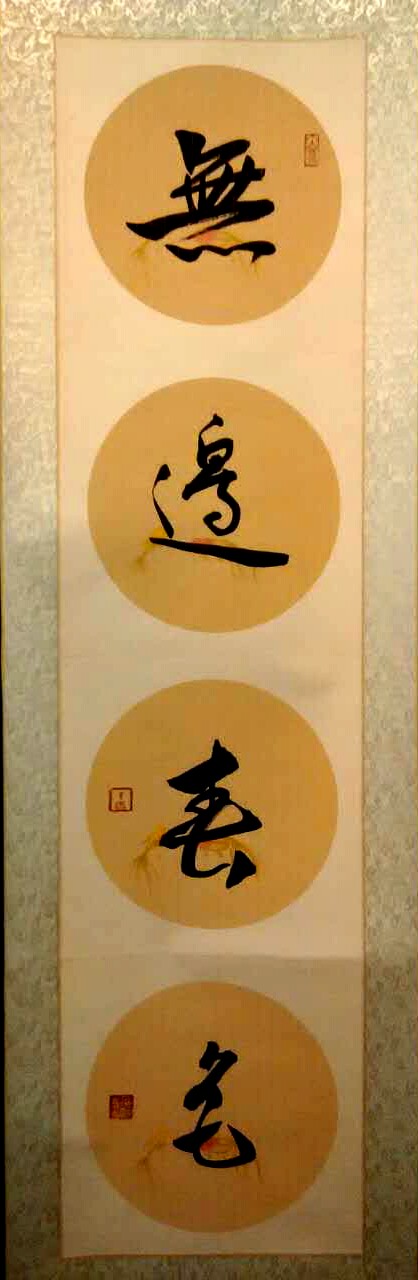 無
邊
春
色